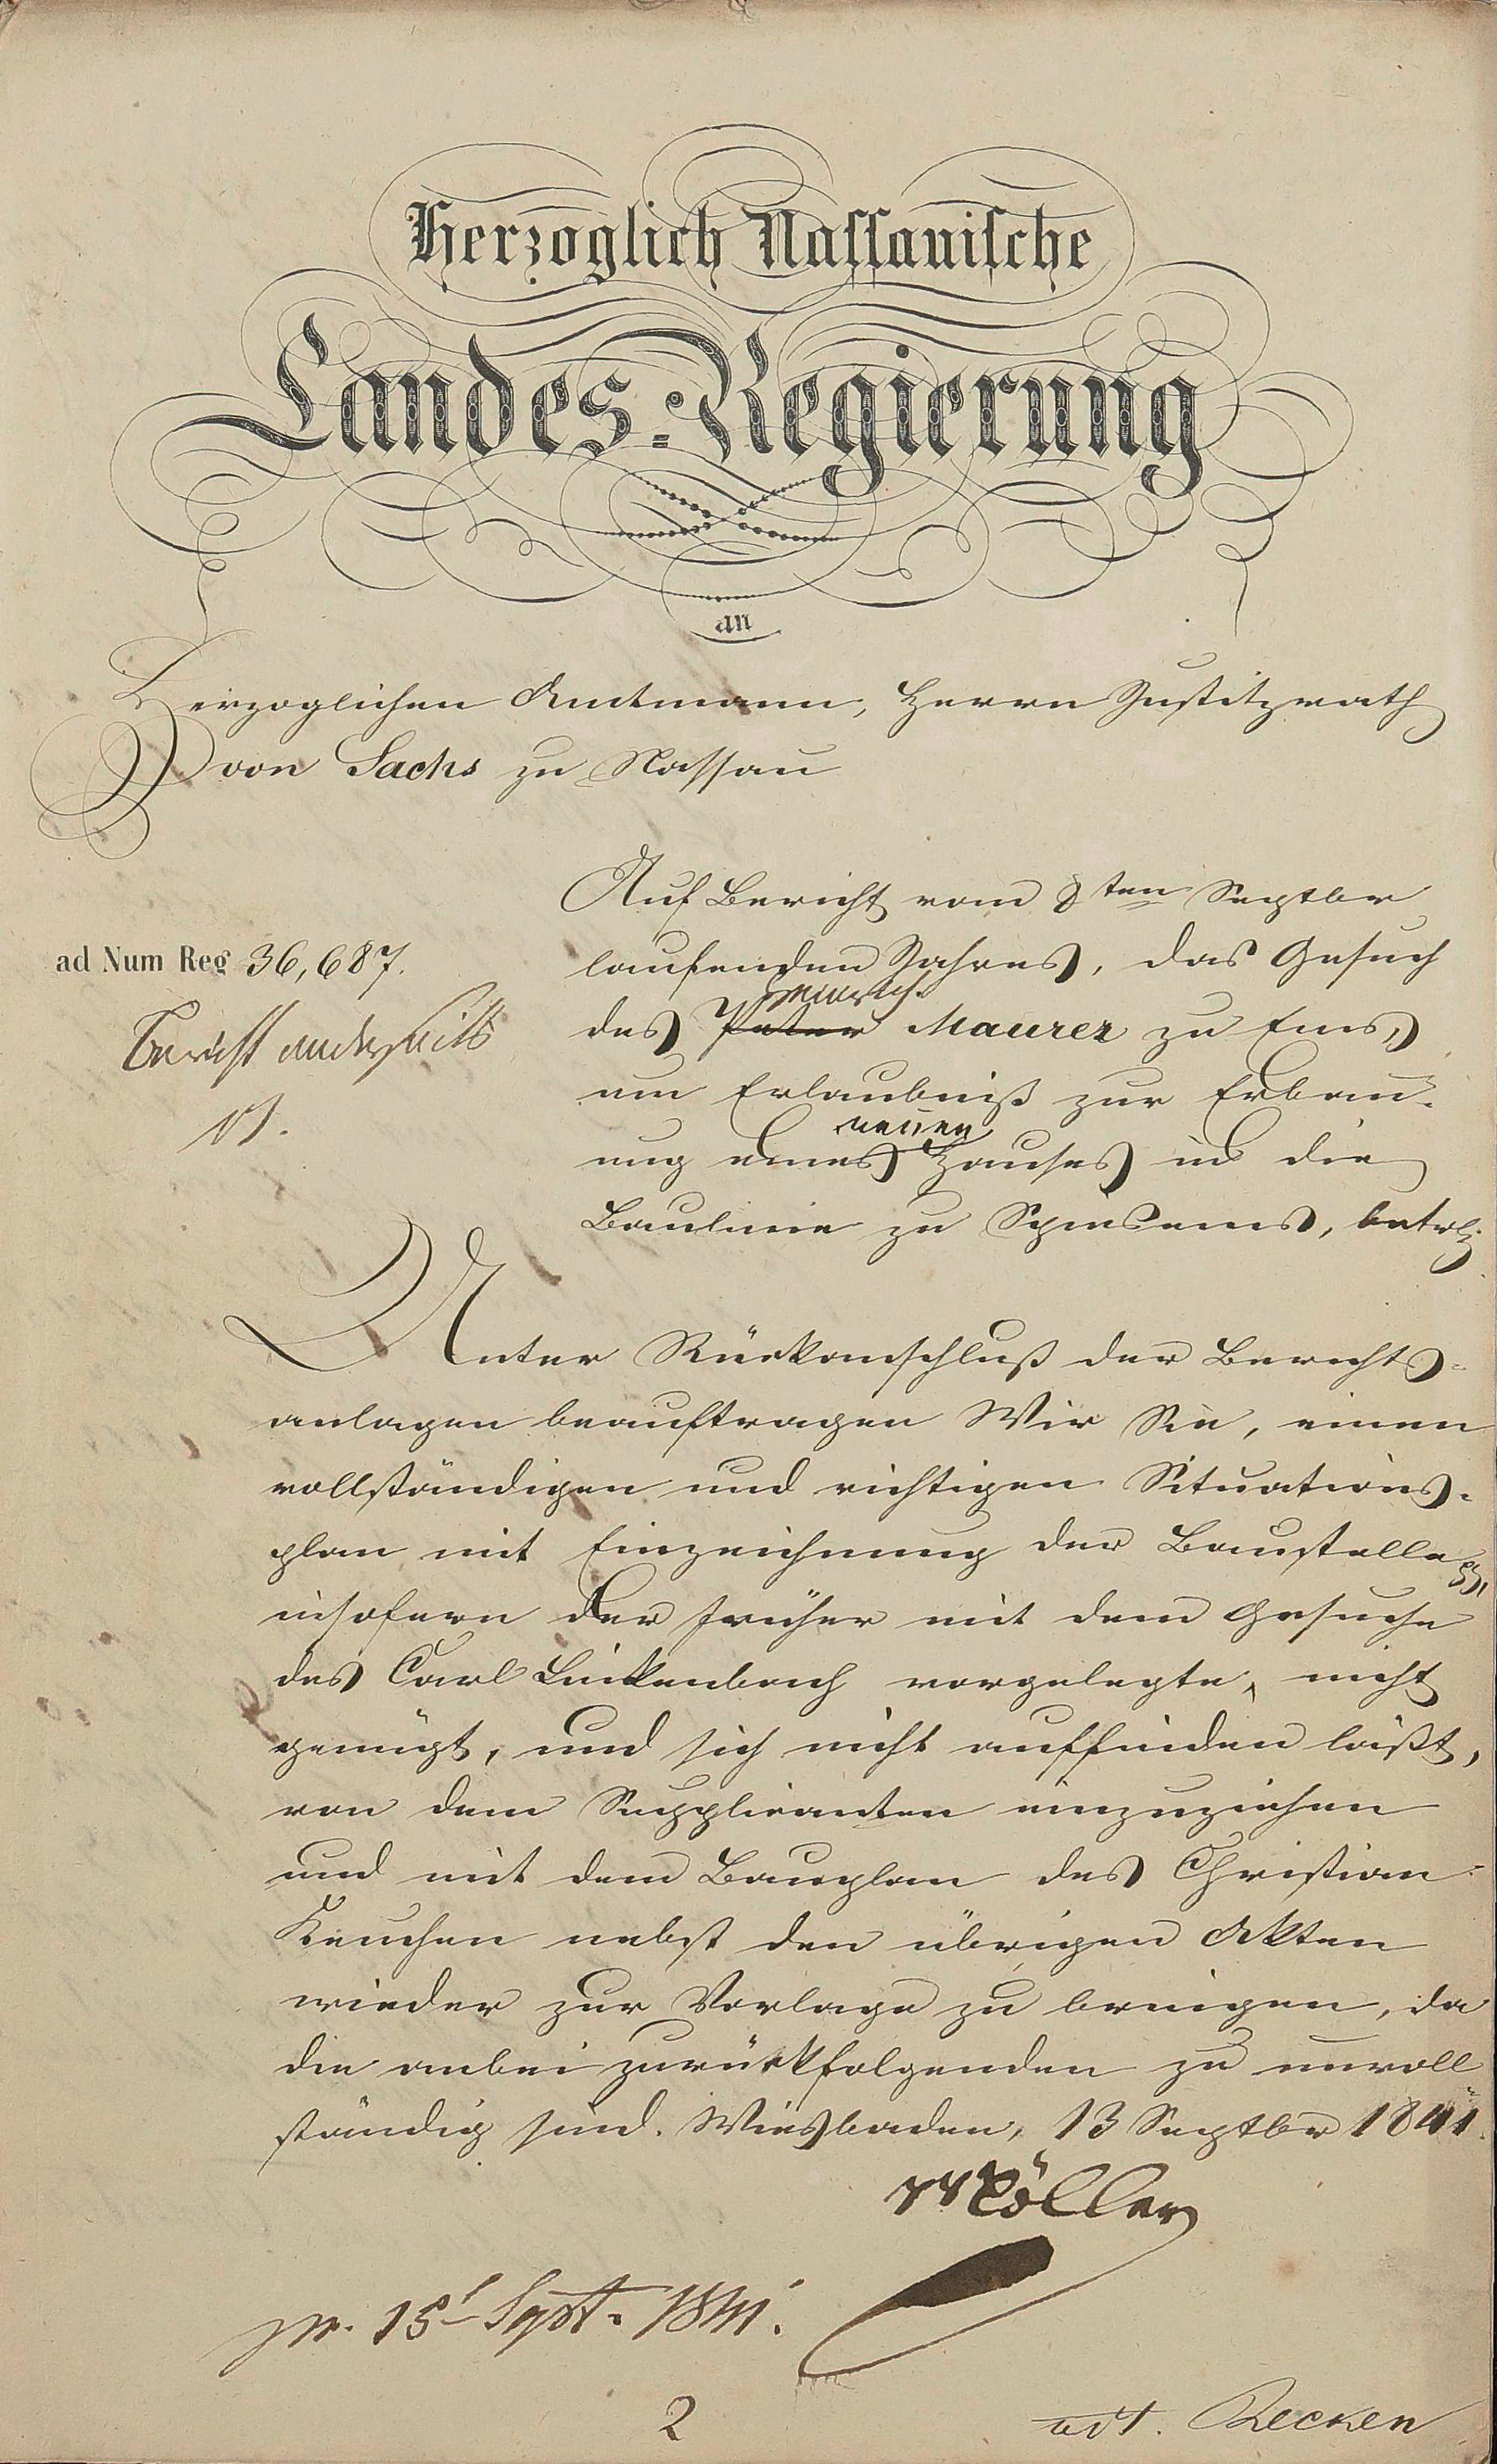 Herzoglich Nassauische
Landes-Regierung
an
Herzoglichen Amtmann, Herrn Justitzrath
von Sachs zu Nassau
Auf Bericht vom 8ten Septbr
ad Num Reg 36,687.
laufenden Jahres, das Gesuch
Heinrich
des Peter Maurer zu Ems,
Bericht anderseits
um Erlaubniß zur Erbau-
neuen
ung eines Hauses in die
Baulinie zu Spiesems, betr
Unter Rückanschluß der Berichts-
anlagen beauftragen Wir Sie, einen
vollständigen und richtigen Situations-
plan mit Einzeichnung der Baustelle
insofern der früher mit dem Gesuche
des Carl Linkenbach vorgelegte, nicht
genügt, und sich nicht auffinden läßt,
von dem Supplicanten einzuziehen
und mit dem Bauplan des Christian
Keuchen nebst den übrigen Akten
wieder zur Vorlage zu bringen, da
die anbei zurückfolgenden zu unvoll
ständig sind. Wiesbaden, 13 Septbr 1841.
Möller
pr. 15t Spt. 1841.
2
vdt. Recken